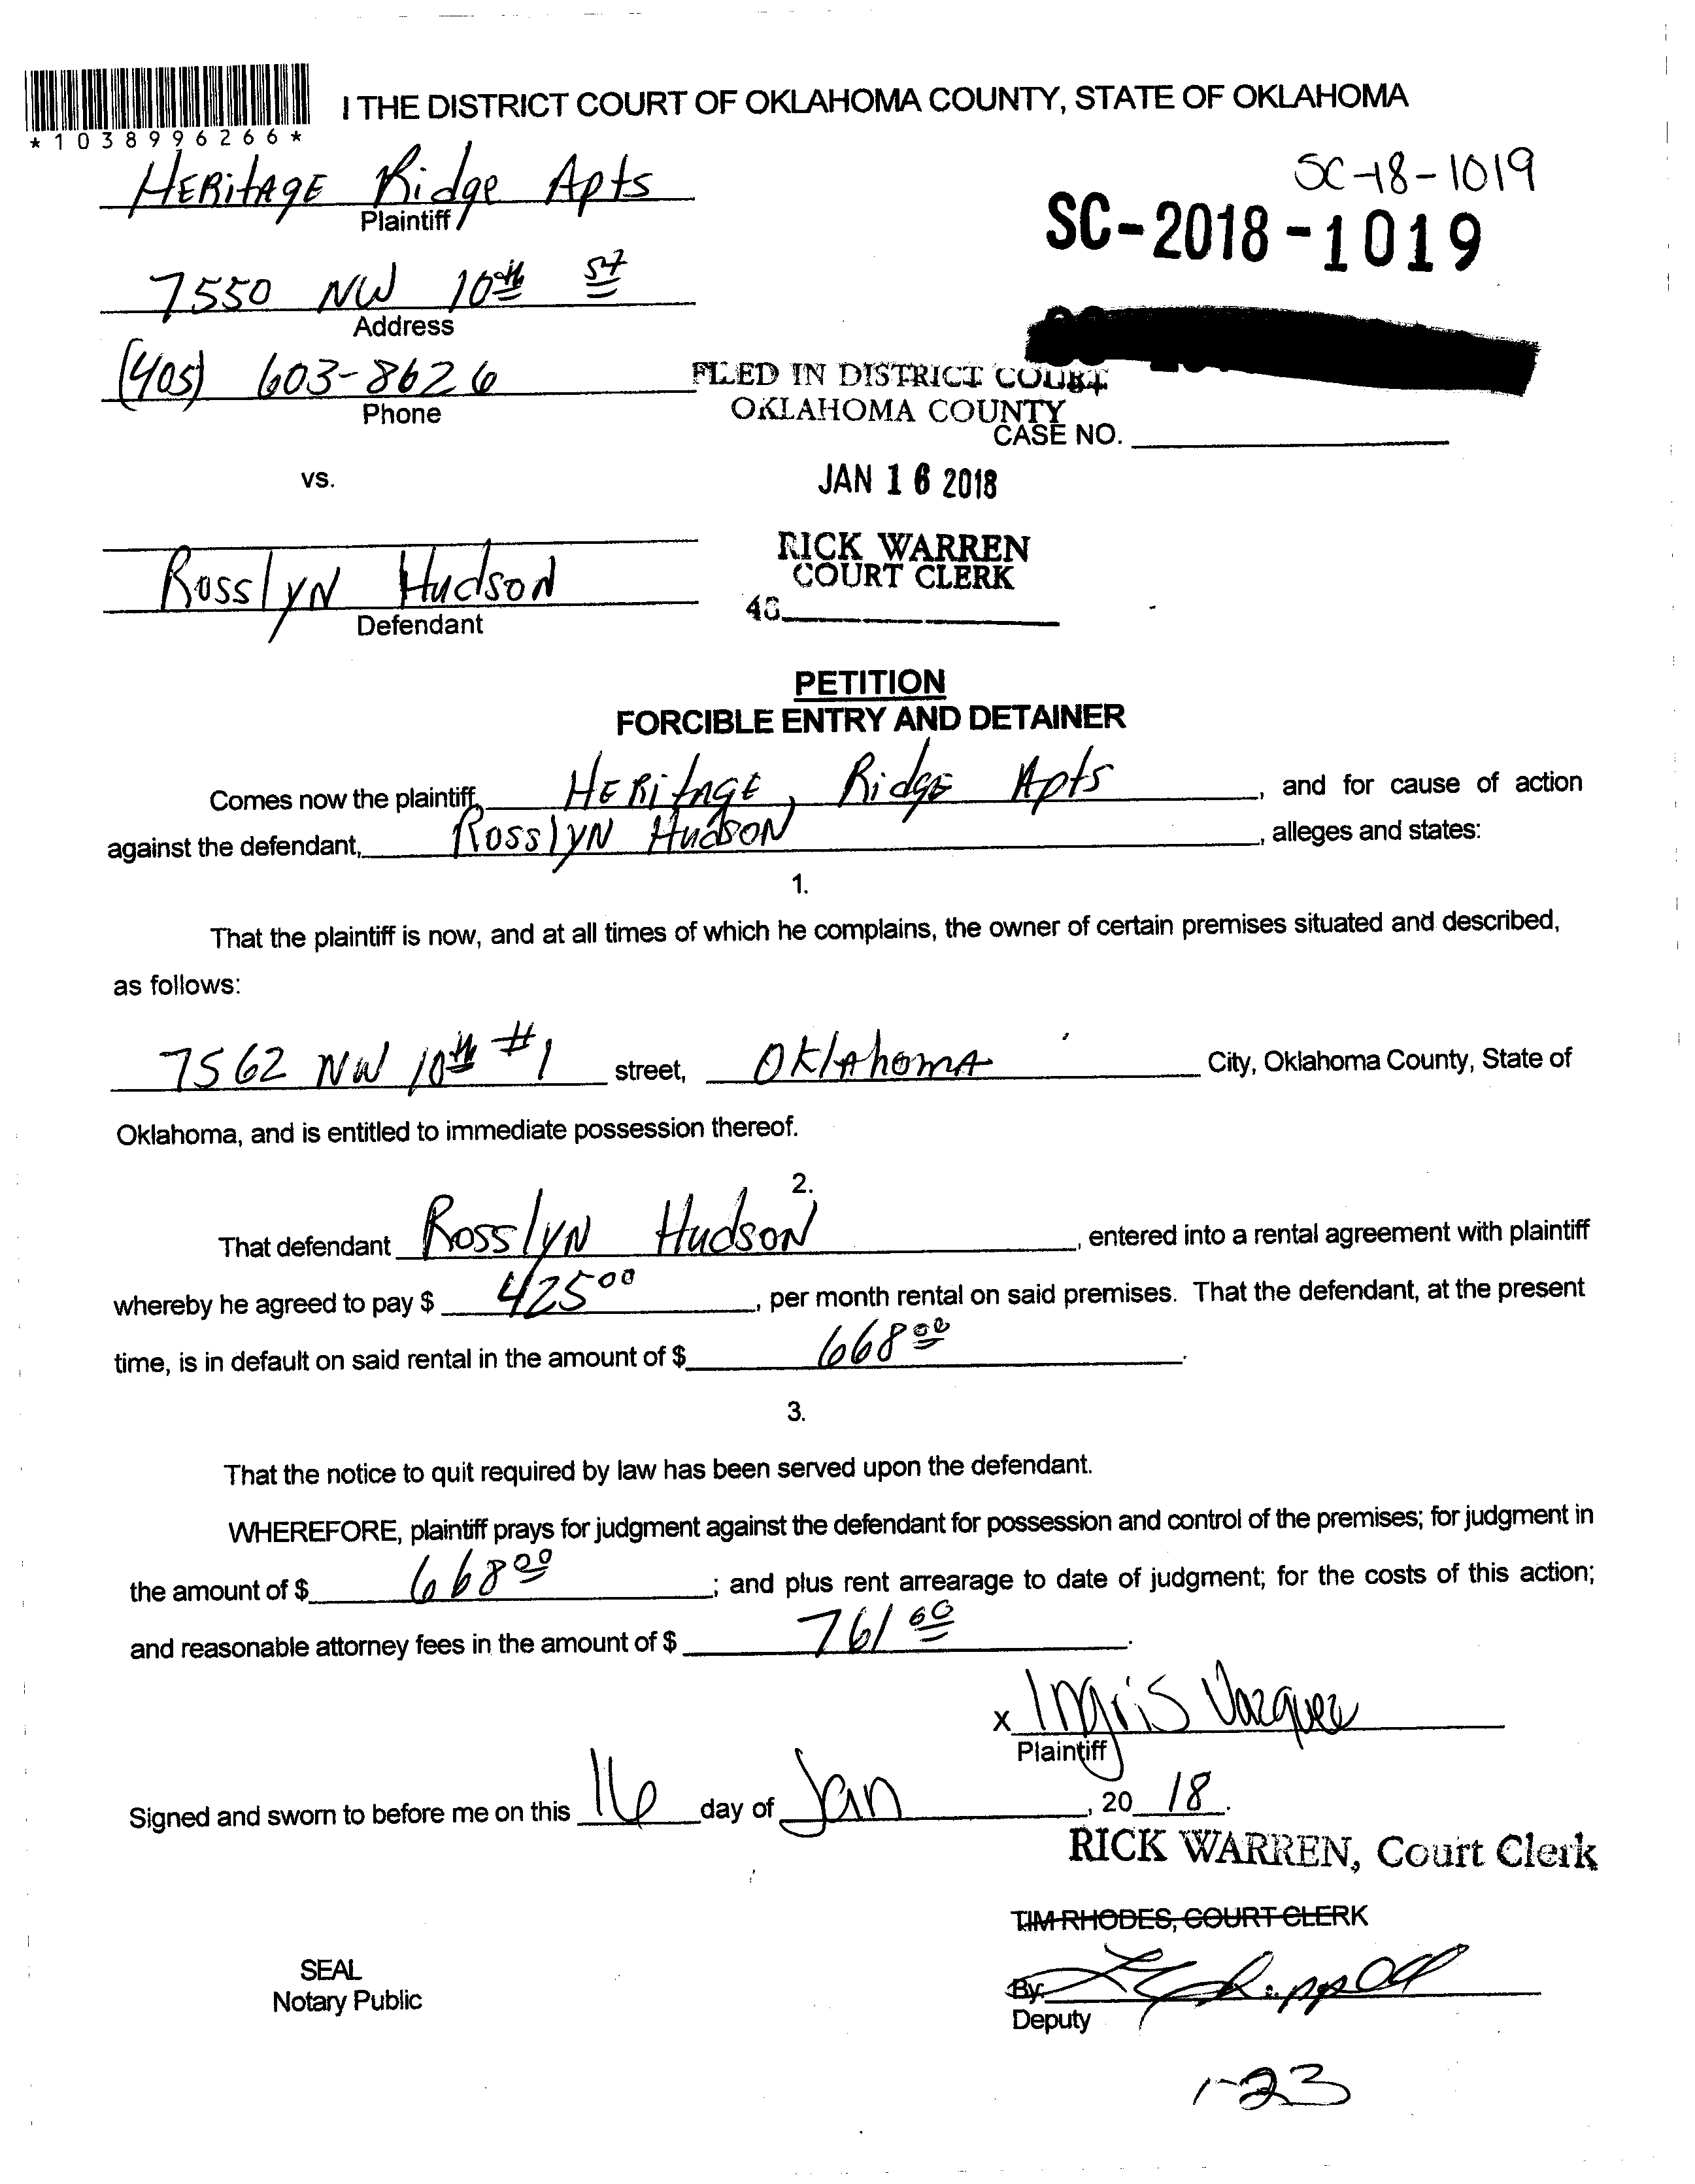 I THE DISTRICT COURT OF OKLAHOMA COUNTY, STATE OF OKLAHOMA
*1038996266*
HERitAGE Ridge Apts
Plaintiff
SC-18-1019
SC-2018-1019
7550 NW 10th St
Address
(405) 603-8626
Phone
FILED IN DISTRICT COURT
OKLAHOMA COUNTY
CASE NO.
vs.
JAN 16 2018
RICK WARREN
COURT CLERK
Rosslyn Hudson
Defendant
PETITION
FORCIBLE ENTRY AND DETAINER
Comes now the plaintiff, HERitAGE Ridge Apts, and for cause of action
against the defendant, Rosslyn Hudson, alleges and states:
1.
That the plaintiff is now, and at all times of which he complains, the owner of certain premises situated and described,
as follows:
7562 NW 10th #1 street, Oklahoma City, Oklahoma County, State of
Oklahoma, and is entitled to immediate possession thereof.
2.
That defendant Rosslyn Hudson, entered into a rental agreement with plaintiff
whereby he agreed to pay $ 425 00, per month rental on said premises. That the defendant, at the present
time, is in default on said rental in the amount of $ 668 00.
3.
That the notice to quit required by law has been served upon the defendant.
WHEREFORE, plaintiff prays for judgment against the defendant for possession and control of the premises; for judgment in
the amount of $ 668 00; and plus rent arrearage to date of judgment; for the costs of this action;
and reasonable attorney fees in the amount of $ 761 60.
x Ingris Vazquez
Plaintiff
Signed and sworn to before me on this 16 day of Jan, 20 18.
RICK WARREN, Court Clerk
TIM RHODES, COURT CLERK
SEAL
Notary Public
By:
Deputy
1-23